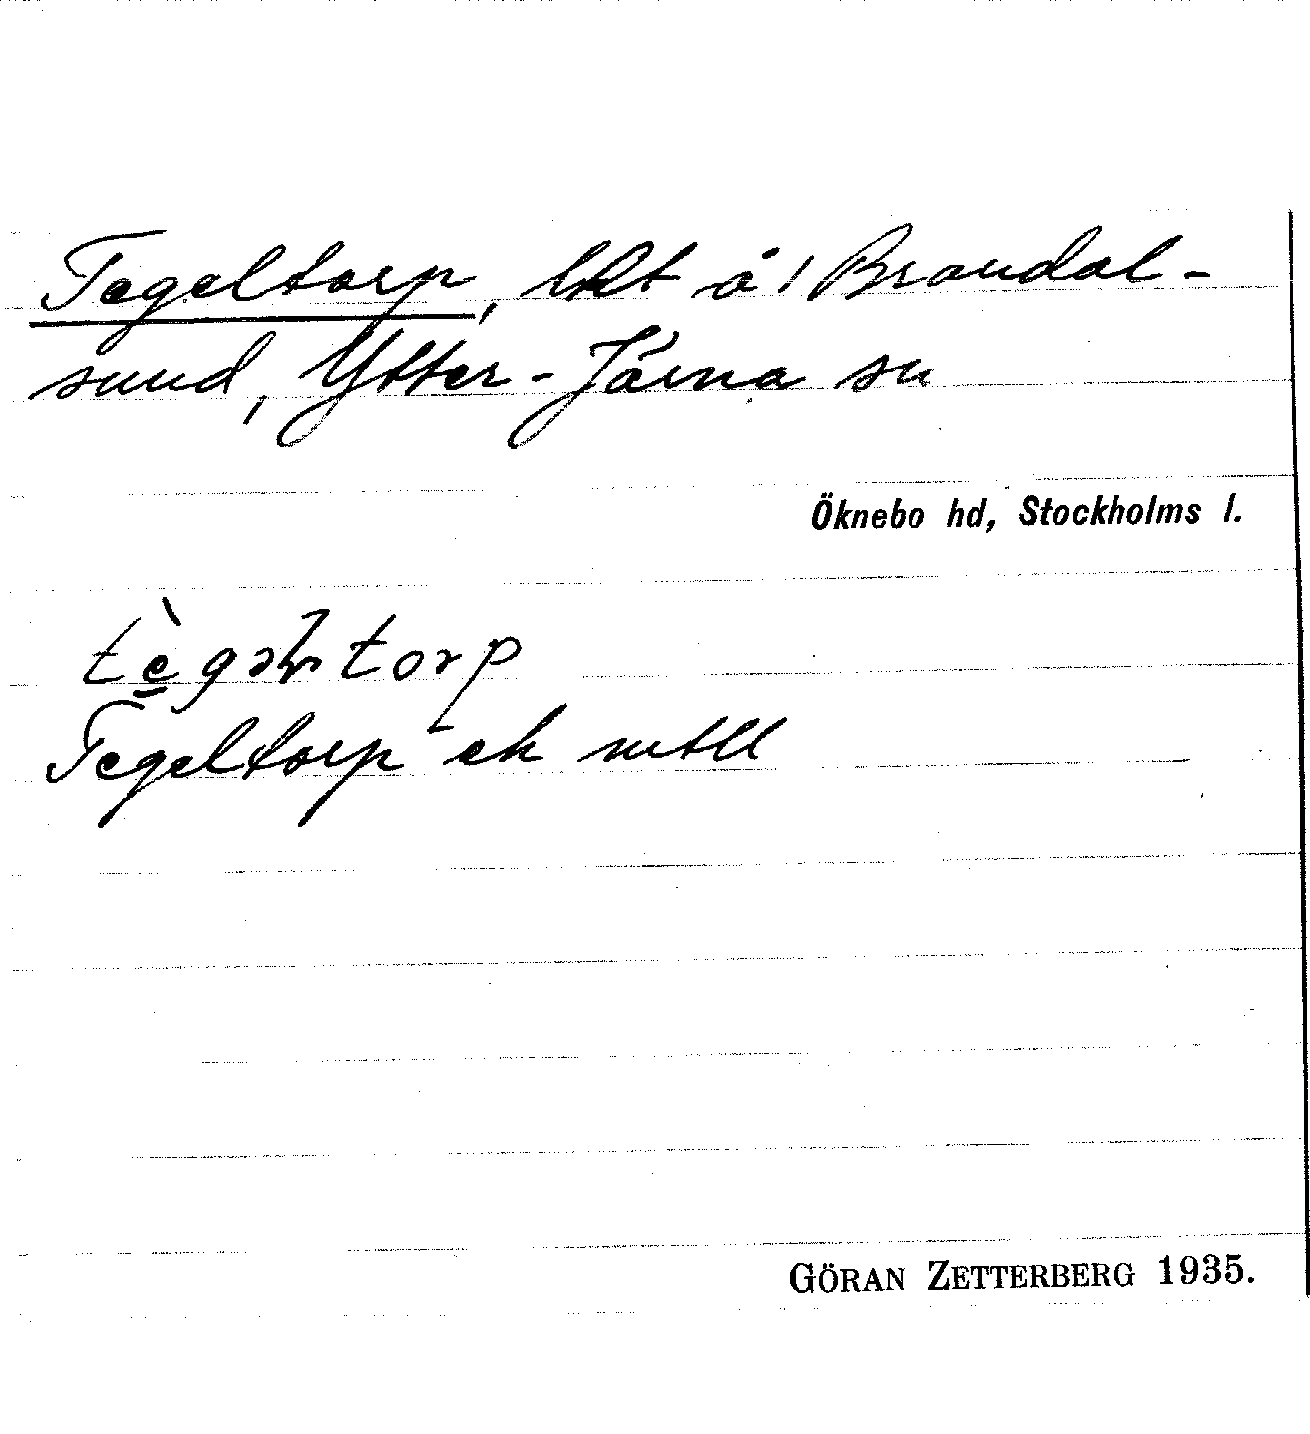 Tegeltorp, lht å 1 Brandal-
sund, Ytter-Järna sn
Öknebo hd, Stockholms l.
Tegeltorp ek mtll
GÖRAN ZETTERBERG 1935.